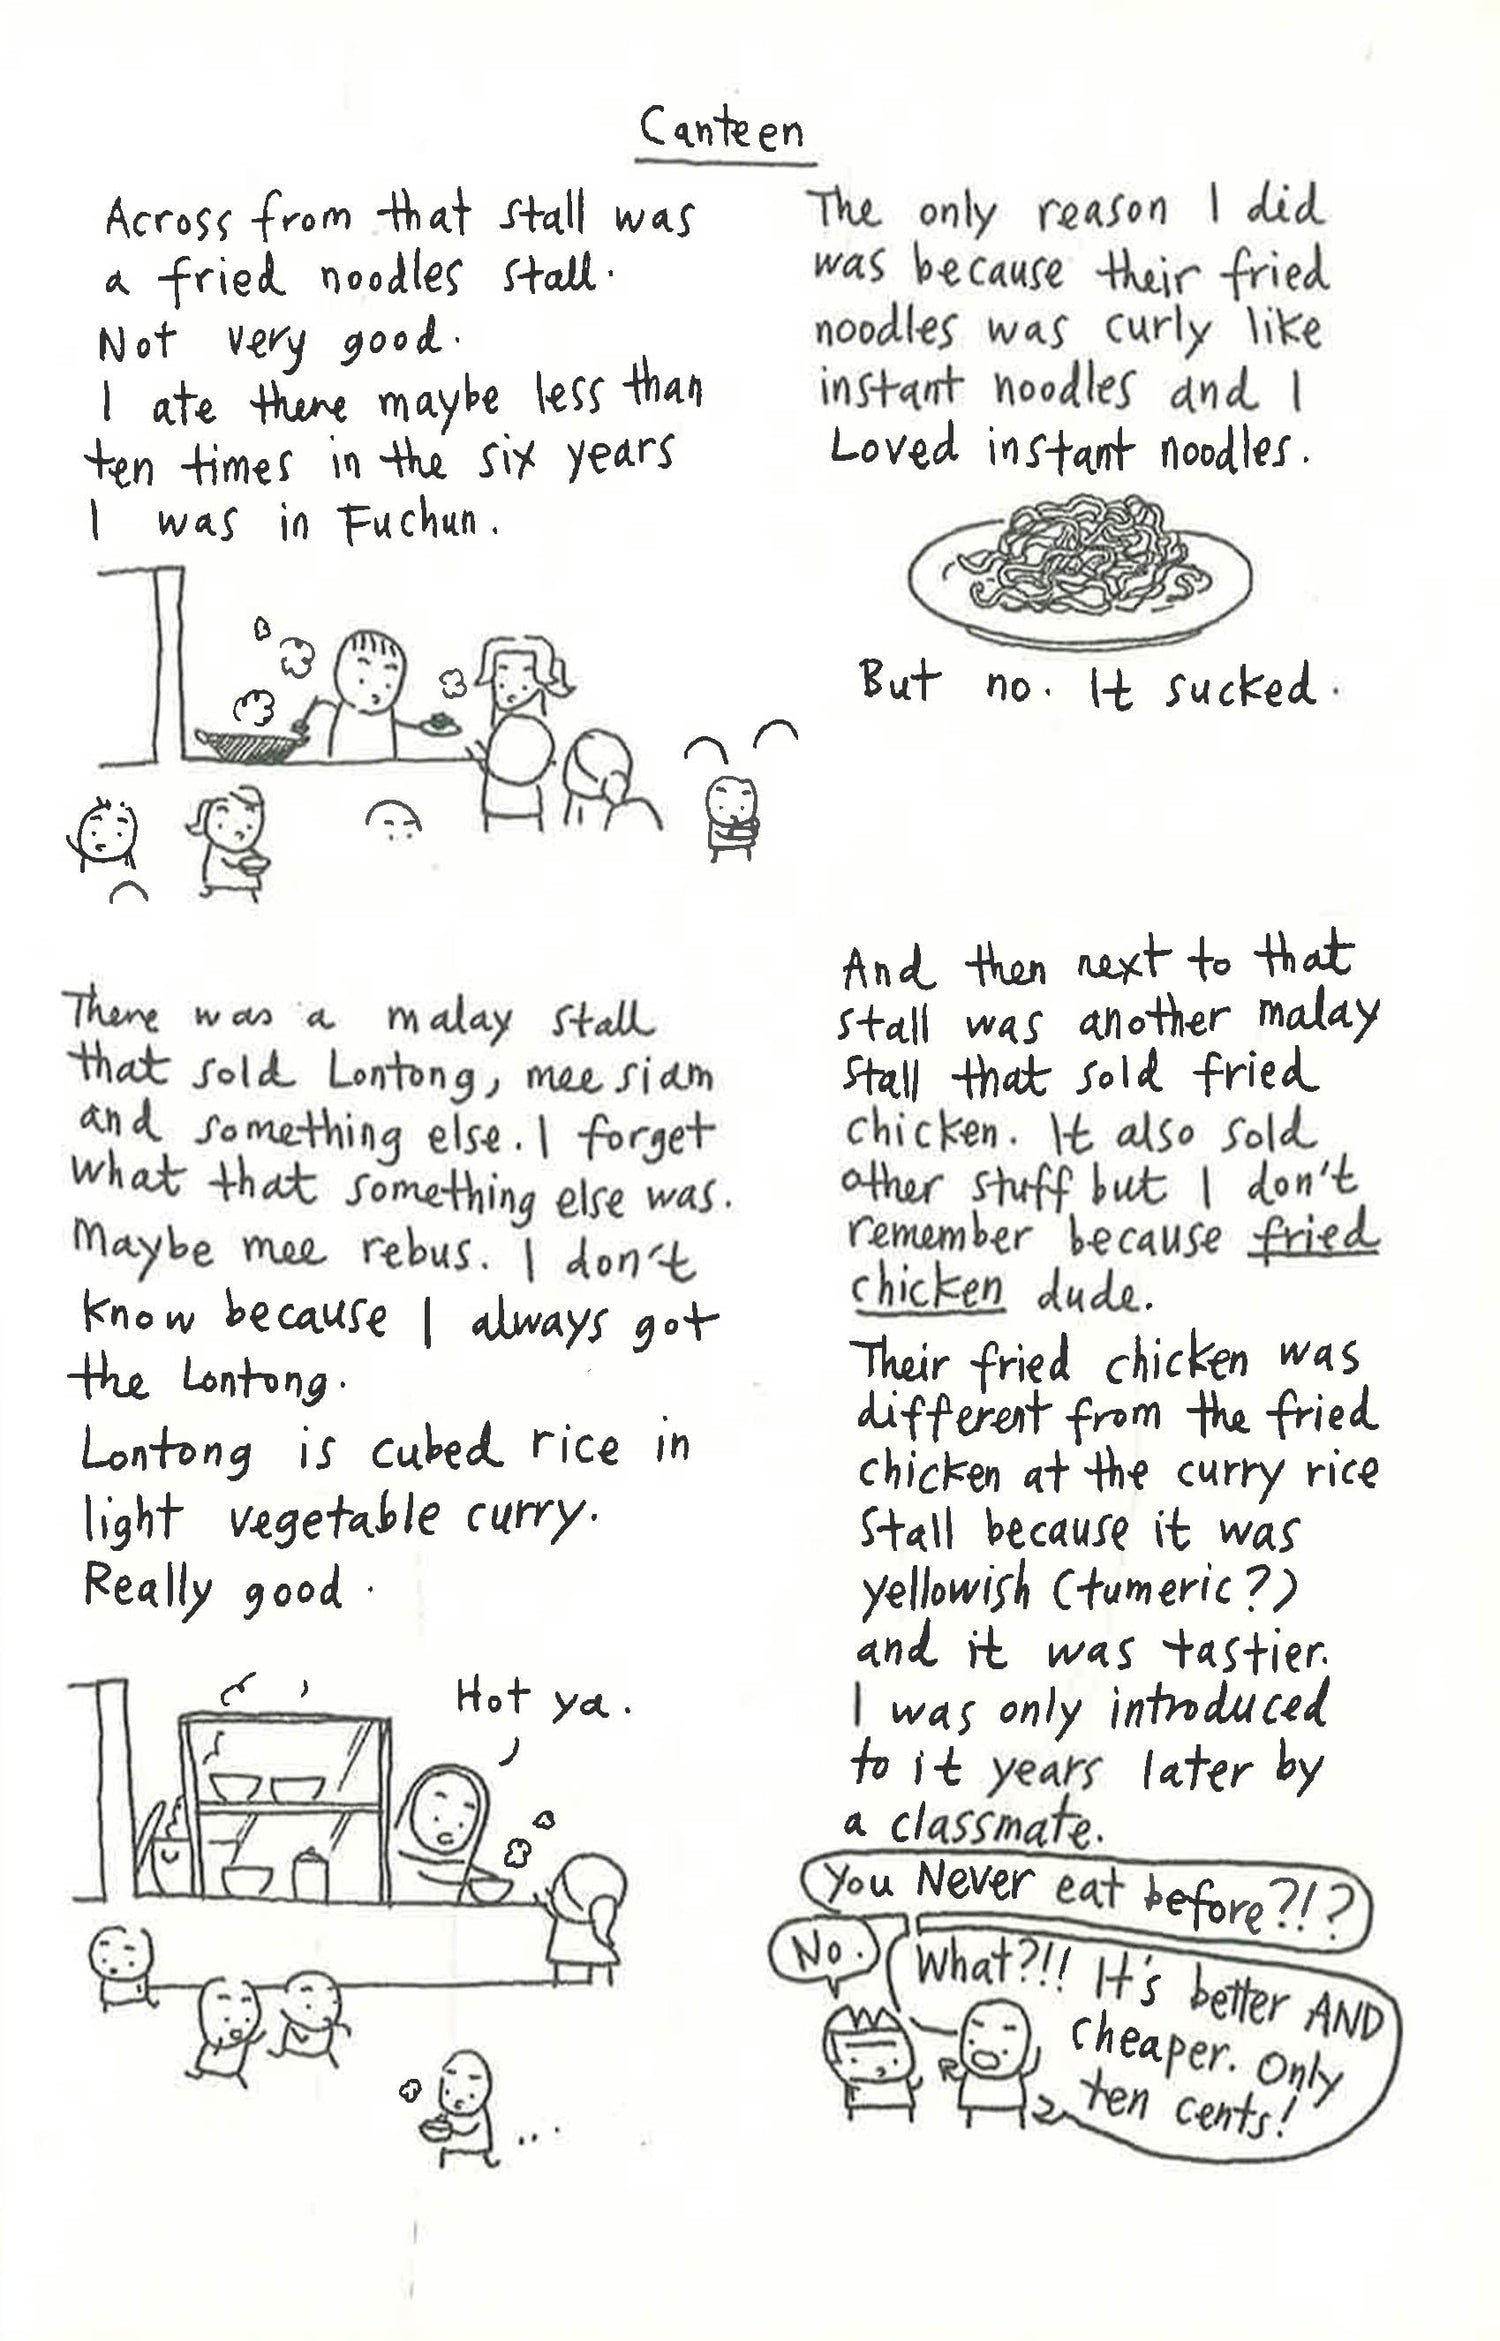 Canteen
Across from that stall was
a fried noodles stall.
Not very good.
I ate there maybe less than
ten times in the six years
I was in Fuchun.
The only reason I did
was because their fried
noodles was curly like
instant noodles and I
Loved instant noodles.
But no. It sucked.
There was a malay stall
that sold Lontong, mee siam
and something else. I forget
what that something else was.
Maybe mee rebus. I don't
know because I always got
the Lontong.
Lontong is cubed rice in
light vegetable curry.
Really good.
Hot ya.
And then next to that
stall was another malay
stall that sold fried
chicken. It also sold
other stuff but I don't
remember because fried
chicken dude.
Their fried chicken was
different from the fried
chicken at the curry rice
stall because it was
yellowish (tumeric?)
and it was tastier.
I was only introduced
to it years later by
a classmate.
You Never eat before?!?
No.
What?!! It's better AND
cheaper. Only
ten cents!